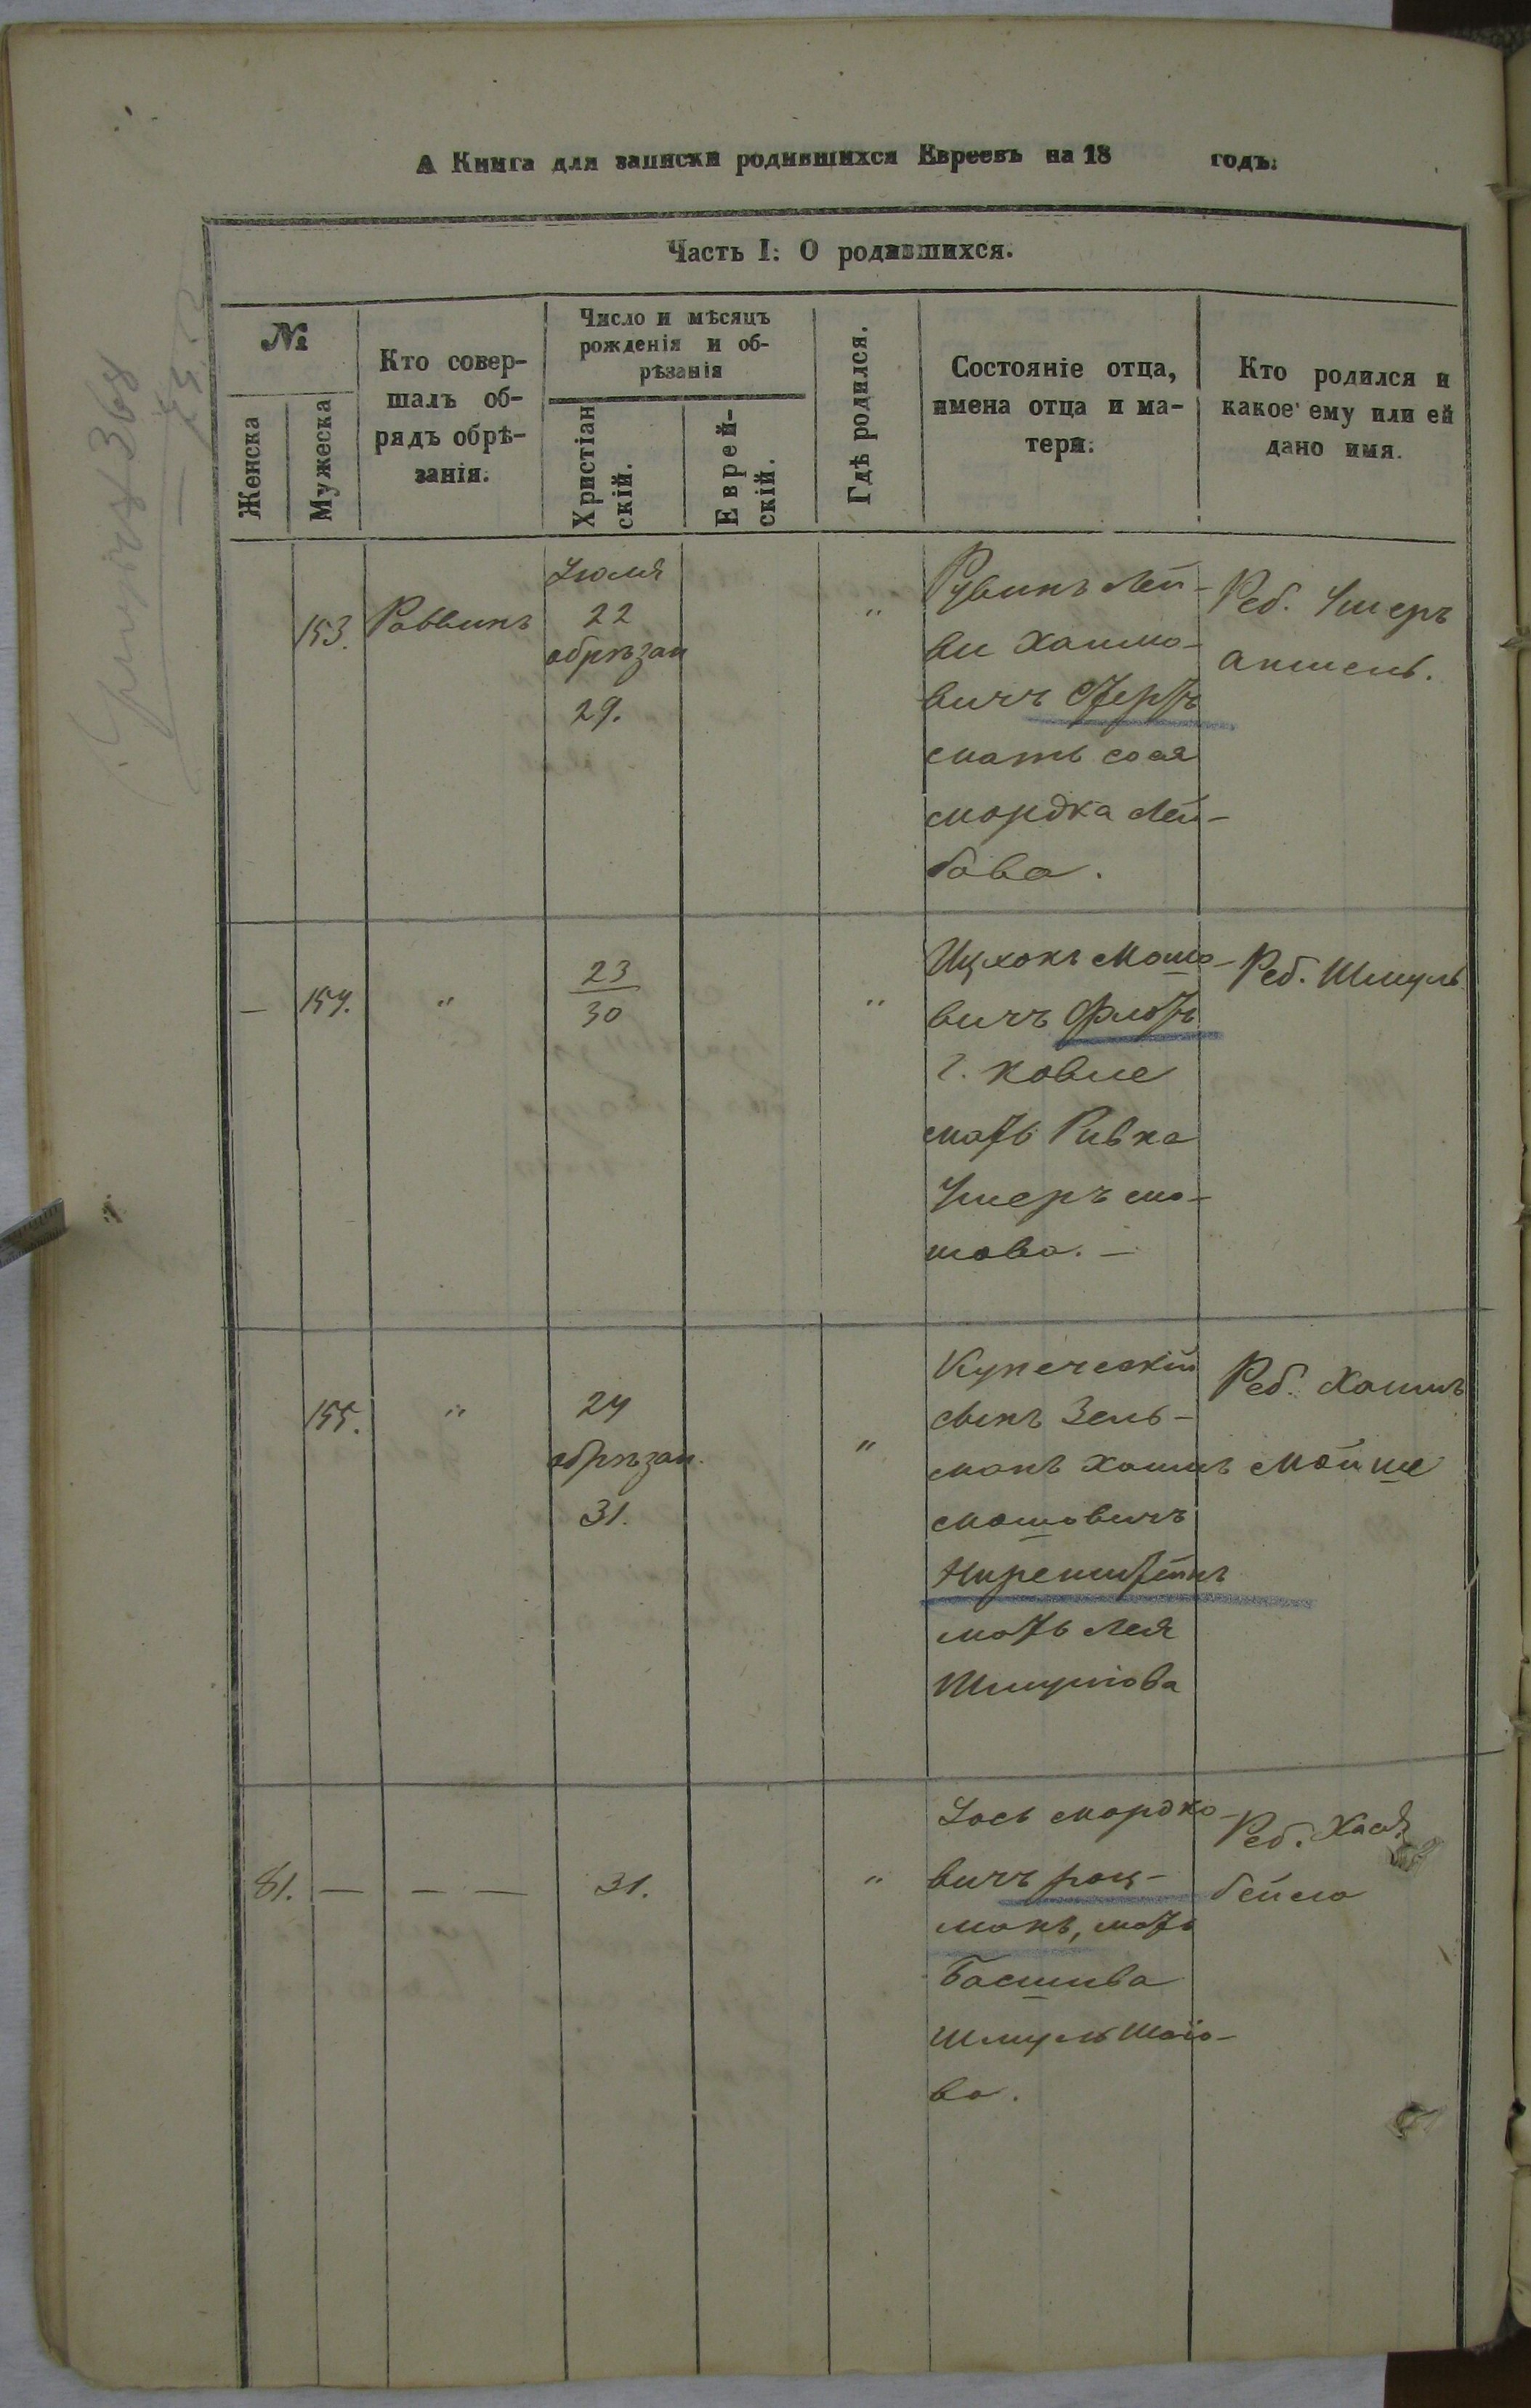 А Книга для записки родившихся Евреевъ на 18 годъ.
Часть I: О родившихся.
№
Женска
Мужеска
Кто совер-
шалъ об-
рядъ обрѣ-
занія.
Число и мѣсяцъ
рожденія и об-
рѣзанія
Христіан
скій.
Еврей-
скій.
Гдѣ родился.
Состояніе отца,
имена отца и ма-
тери.
Кто родился и
какое ему или ей
дано имя.
153.
Раввинъ
Іюля
22
обрѣзан
29.
"
Рувинъ Лей-
ви Хаимо-
вичъ
мать сося
мордка Лей-
бова.
Реб. Ушеръ
аншель.
—
154.
"
23
30
"
Ицхокъ Мошо-
вичъ
г. Ковне
мать Ривка
Ушеръ мо-
шова. —
Реб. Шмуль
155.
"
24
обрѣзан.
31.
"
Купеческій
сынъ Зель-
манъ Хаимъ
мошовичъ
мать Лея
Шмуйлова
Реб. Хаимъ
Мойше
81.
—
— —
31.
"
Іосъ мордко-
вичъ рац-
манъ, мать
Басшива
Шмуель Шаіо-
ва.
Реб. Хася
бейла